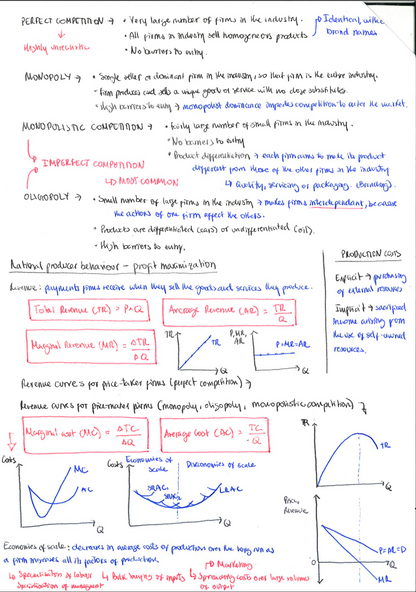 PERFECT COMPETITION → • Very large number of firms in the industry.
• All firms in industry sell homogeneous products → Identical, without brand names
• No barriers to entry.
Highly unrealistic
MONOPOLY → • Single seller or dominant firm in the industry, so that firm is the entire industry.
• Firm produces and sells a unique good or service with no close substitutes.
• High barriers to entry → monopolist dominance impedes competition to enter the market.
MONOPOLISTIC COMPETITION → • Fairly large number of small firms in the industry.
• No barriers to entry
• Product differentiation → each firm aims to make its product different from those of the other firms in the industry
↳ Quality, servicing or packaging. (Branding).
IMPERFECT COMPETITION
↳ MOST COMMON
OLIGOPOLY → • Small number of large firms in the industry → makes firms interdependent, because
the actions of one firm effect the others.
• Products are differentiated (cars) or undifferentiated (oil).
• High barriers to entry.
Rational producer behaviour - profit maximization
Revenue: payments firms receive when they sell the goods and services they produce.
PRODUCTION COSTS
Explicit → purchasing of external resources
Implicit → sacrificed income arising from the use of self-owned resources.
Total Revenue (TR) = P×Q
Average Revenue (AR) = TR/Q
Marginal Revenue (MR) = ΔTR/ΔQ
TR TR Q
P, MR, AR P=MR=AR Q
Revenue curves for price-taker firms (perfect competition)
Revenue curves for price-maker firms (monopoly, oligopoly, monopolistic competition)
Marginal cost (MC) = ΔTC/ΔQ
Average Cost (AC) = TC/Q
TR TR Q
Costs MC AC Q
Costs Economies of scale Diseconomies of scale
SRAC SRAC LRAC Q
Price, Revenue
P=AR=D
O Q
MR
Economies of scale: decreases in average costs of production over the long run as
a firm increases all its factors of production.
↳ Specialisation of labour
Specialisation of management
↳ Bulk buying of inputs
Marketing
↳ Spreading costs over large volumes of output